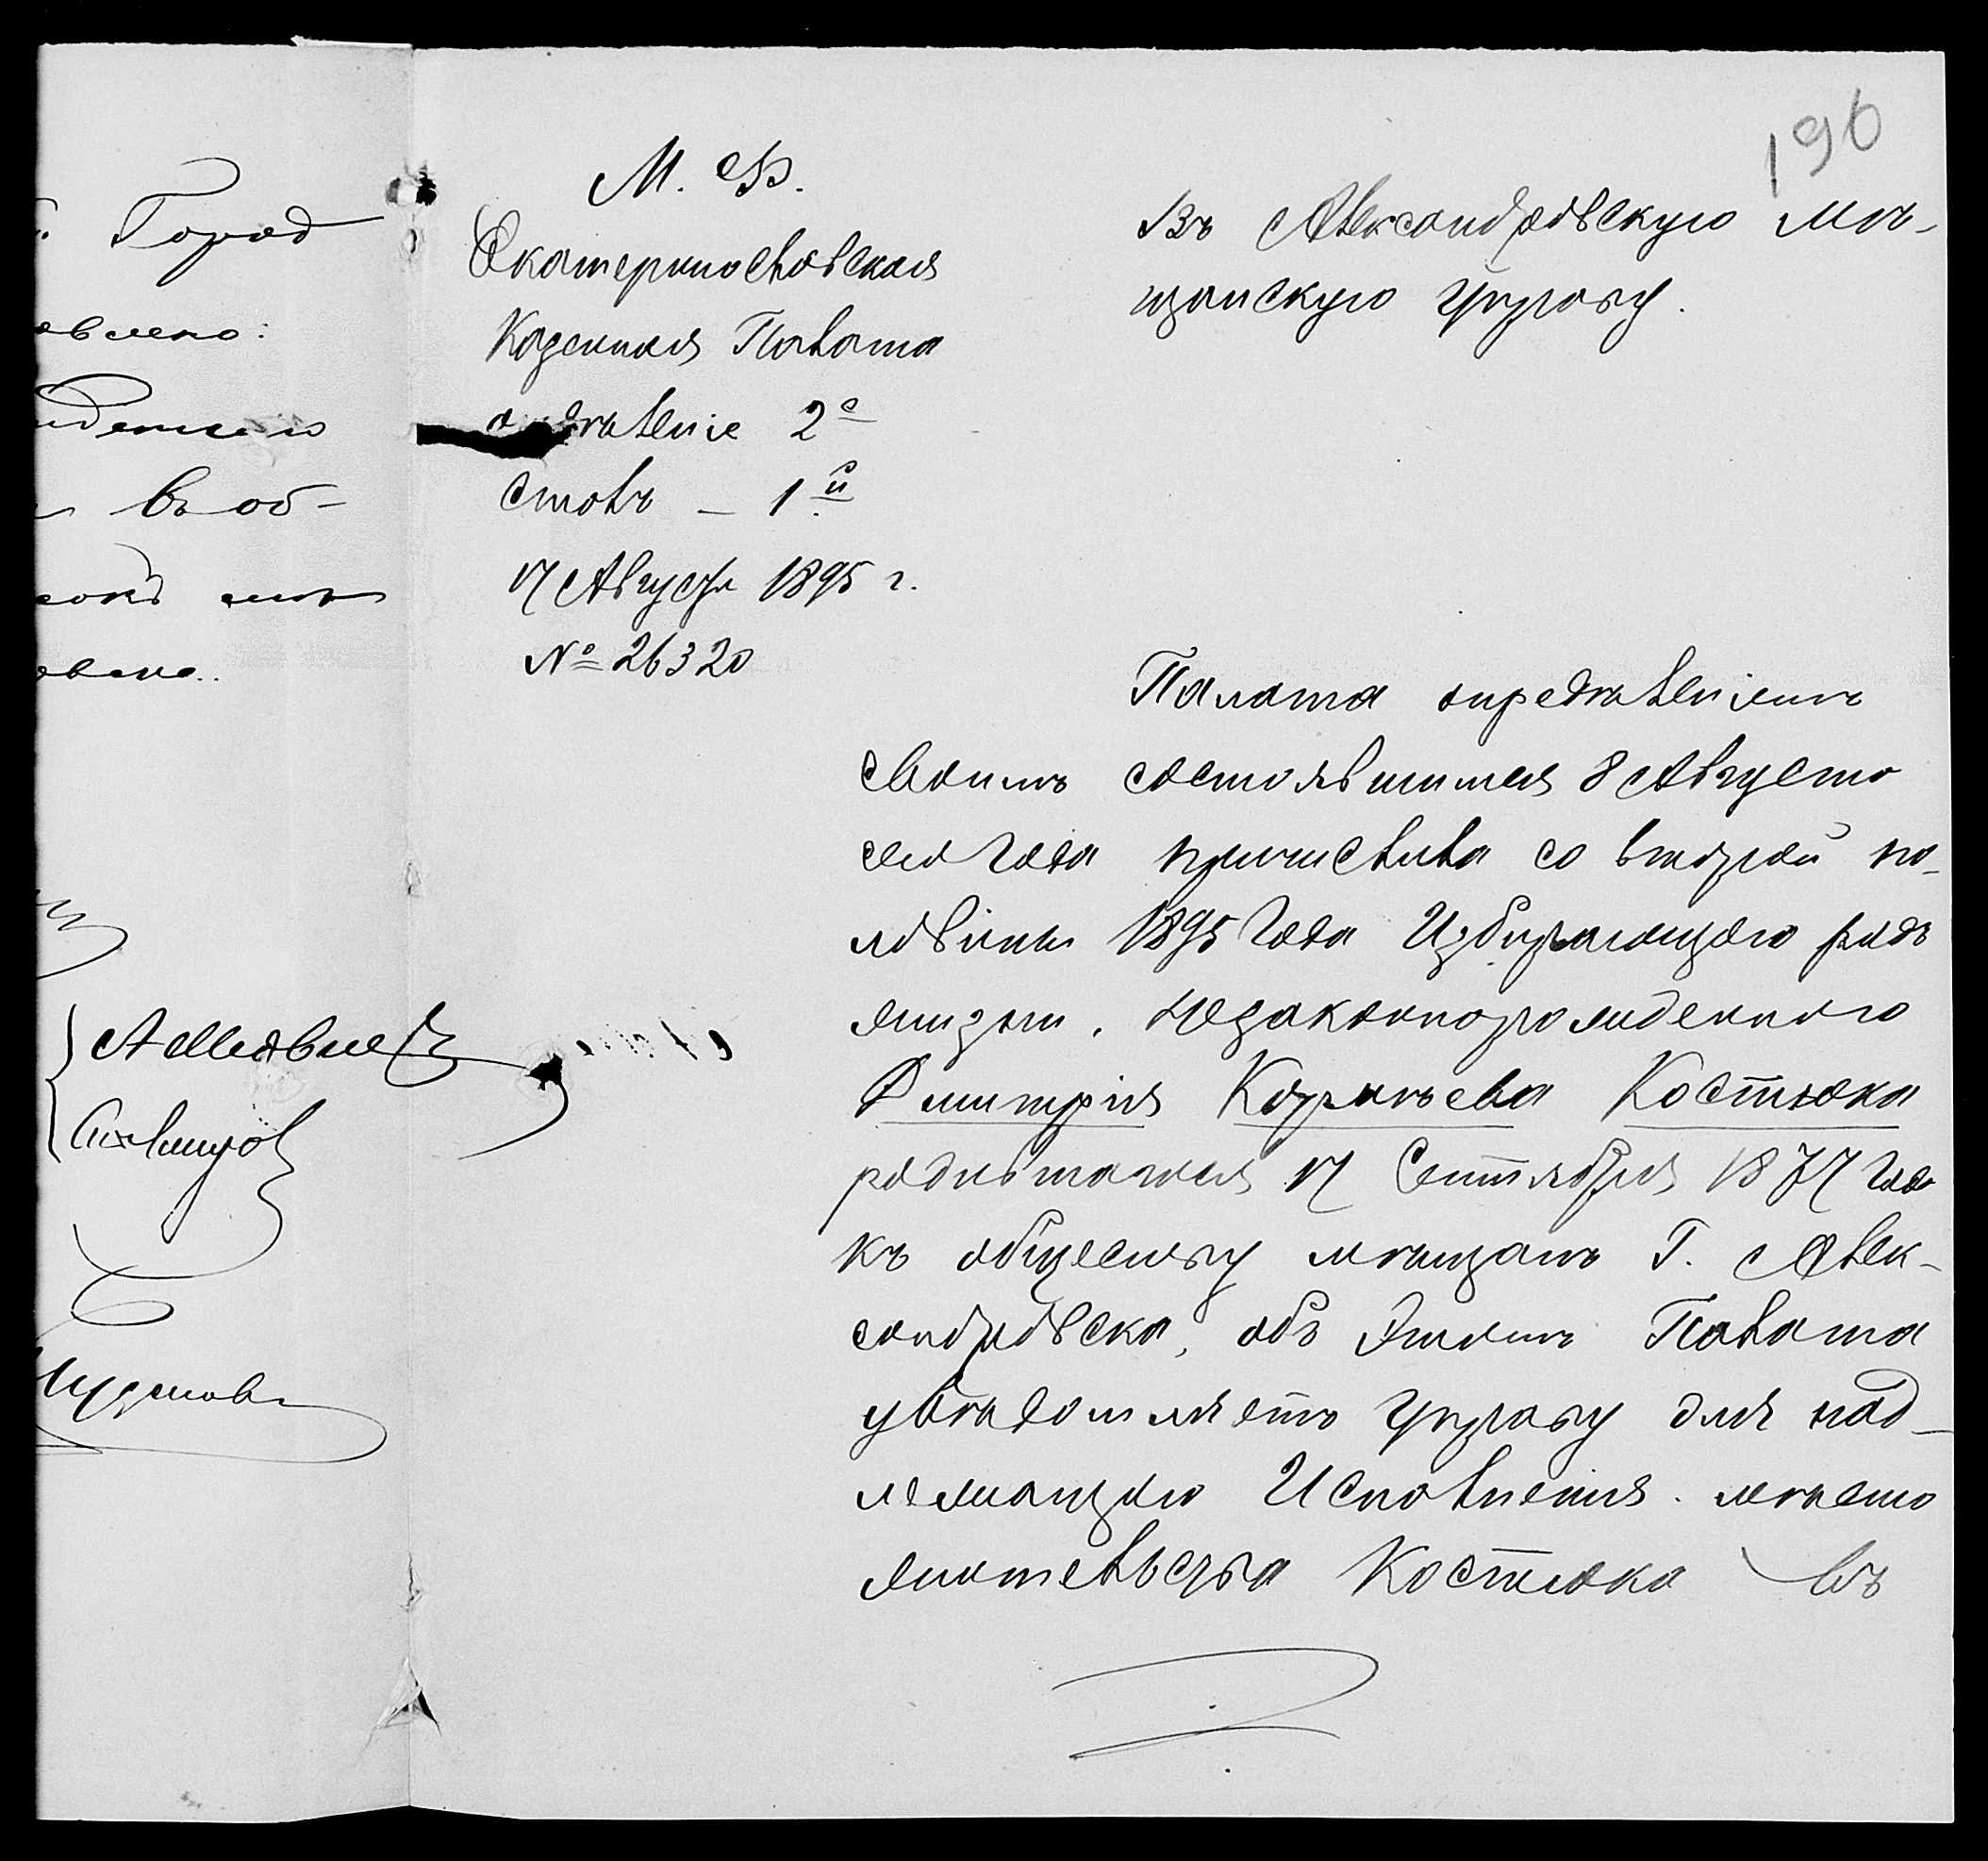 196
М. Ф.
Екатеринославская
Казенная Палата
отделеніе 2е
Столъ – 1й
17 Августа 1895 г.
№ 26320
Въ Александровскую Мѣ-
щанскую Управу.
Палата опредѣленіемъ
своимъ состоявшимся 8 Августа
сего года причислила со второй по-
ловины 1895 года Избирающаго родъ
жизни, незаконнорожденнаго
Димитрія Корнѣева Костюка
родившагося 17 Сентября 1877 года
къ обществу мѣщанъ Г. Алек-
сандровска, объ этомъ Палата
увѣдомляетъ Управу для над-
лежащаго Исполненія. мѣсто
жительства Костюка въ
Город
овлено:
въ об-